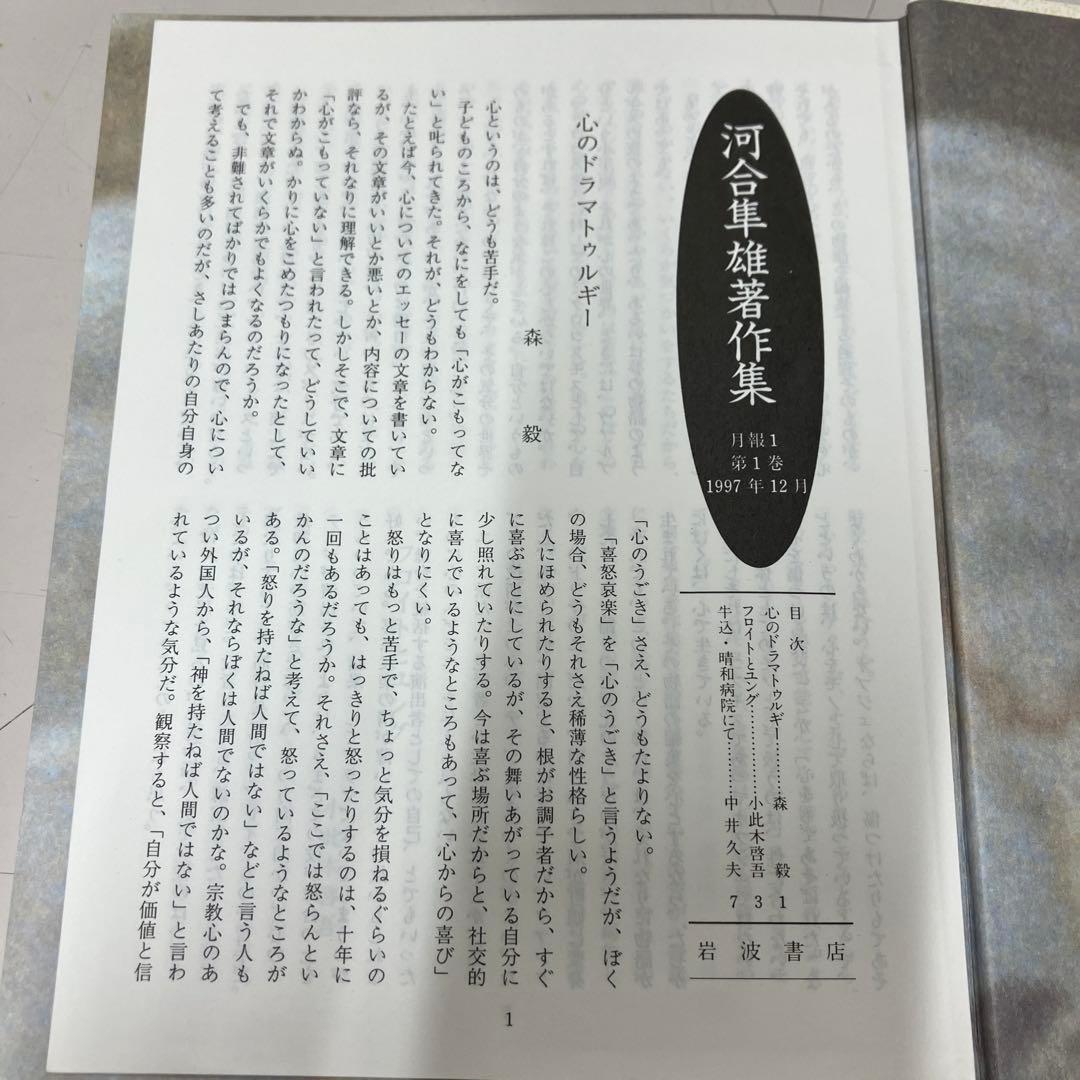 河合隼雄著作集
月報1
第1巻
1997年12月
目次
心のドラマトゥルギー…………森毅 1
フロイトとユング………………小此木啓吾 3
牛込・晴和病院にて…………中井久夫 7
岩波書店
心のドラマトゥルギー
森毅
心というのは、どうも苦手だ。
子どものころから、なにをしても「心がこもってな
い」と叱られてきた。それが、どうもわからない。
たとえば今、心についてのエッセーの文章を書いてい
るが、その文章がいいとか悪いとか、内容についての批
評なら、それなりに理解できる。しかしそこで、文章に
「心がこもっていない」と言われたって、どうしていい
かわからぬ。かりに心をこめたつもりになったとして、
それで文章がいくらかでもよくなるのだろうか。
でも、非難されてばかりではつまらんので、心につい
て考えることも多いのだが、さしあたりの自分自身の
「心のうごき」さえ、どうもたよりない。
「喜怒哀楽」を「心のうごき」と言うようだが、ぼく
の場合、どうもそれさえ稀薄な性格らしい。
人にほめられたりすると、根がお調子者だから、すぐ
に喜ぶことにしているが、その舞いあがっている自分に
少し照れていたりする。今は喜ぶ場所だからと、社交的
に喜んでいるようなところもあって、「心からの喜び」
となりにくい。
怒りはもっと苦手で、ちょっと気分を損ねるぐらいの
ことはあっても、はっきりと怒ったりするのは、十年に
一回もあるだろうか。それさえ、「ここでは怒らんとい
かんのだろうな」と考えて、怒っているようなところが
ある。「怒りを持たねば人間ではない」などと言う人も
いるが、それならぼくは人間でないのかな。宗教心のあ
つい外国人から、「神を持たねば人間ではない」と言わ
れているような気分だ。観察すると、「自分が価値と信
1